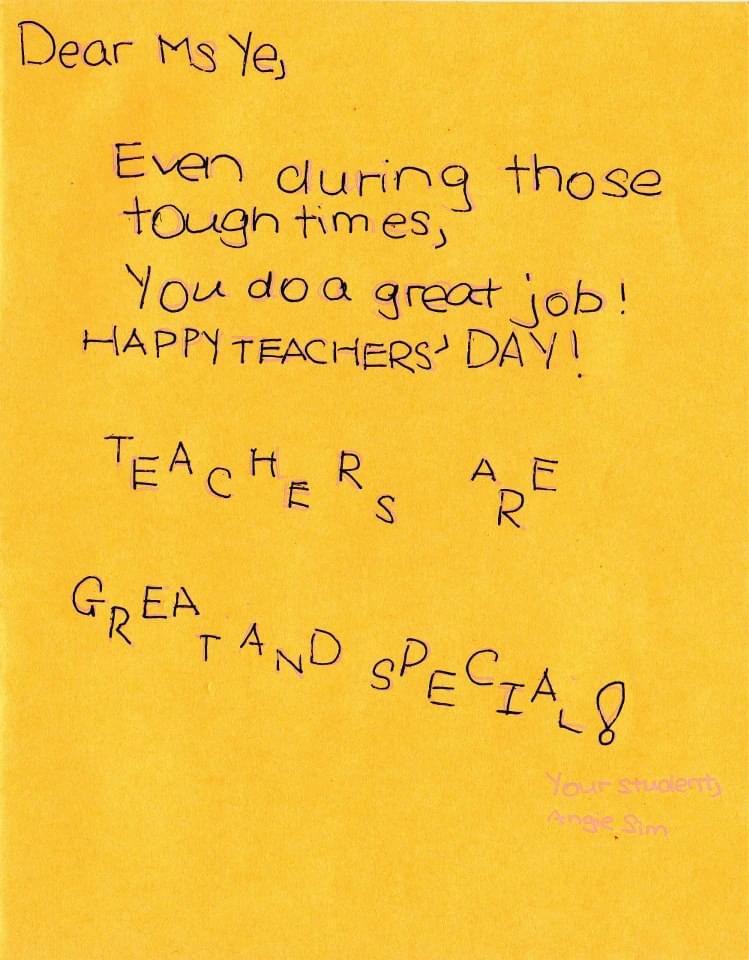 Dear Ms Ye,
Even during those
tough times,
You do a great job!
HAPPY TEACHERS' DAY!
TEACHERS ARE
GREAT AND SPECIAL!
Your student,
Angie Sim